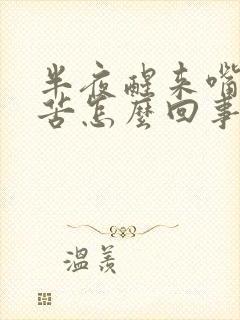 半夜醒来嘴
苦怎麽回事
温羡